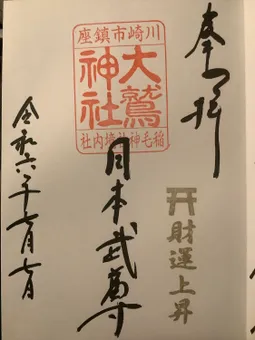 奉拝
財運上昇
川崎市鎮座
大鷲神社
稲毛神社境内社
日本武尊
令和六年七月七日